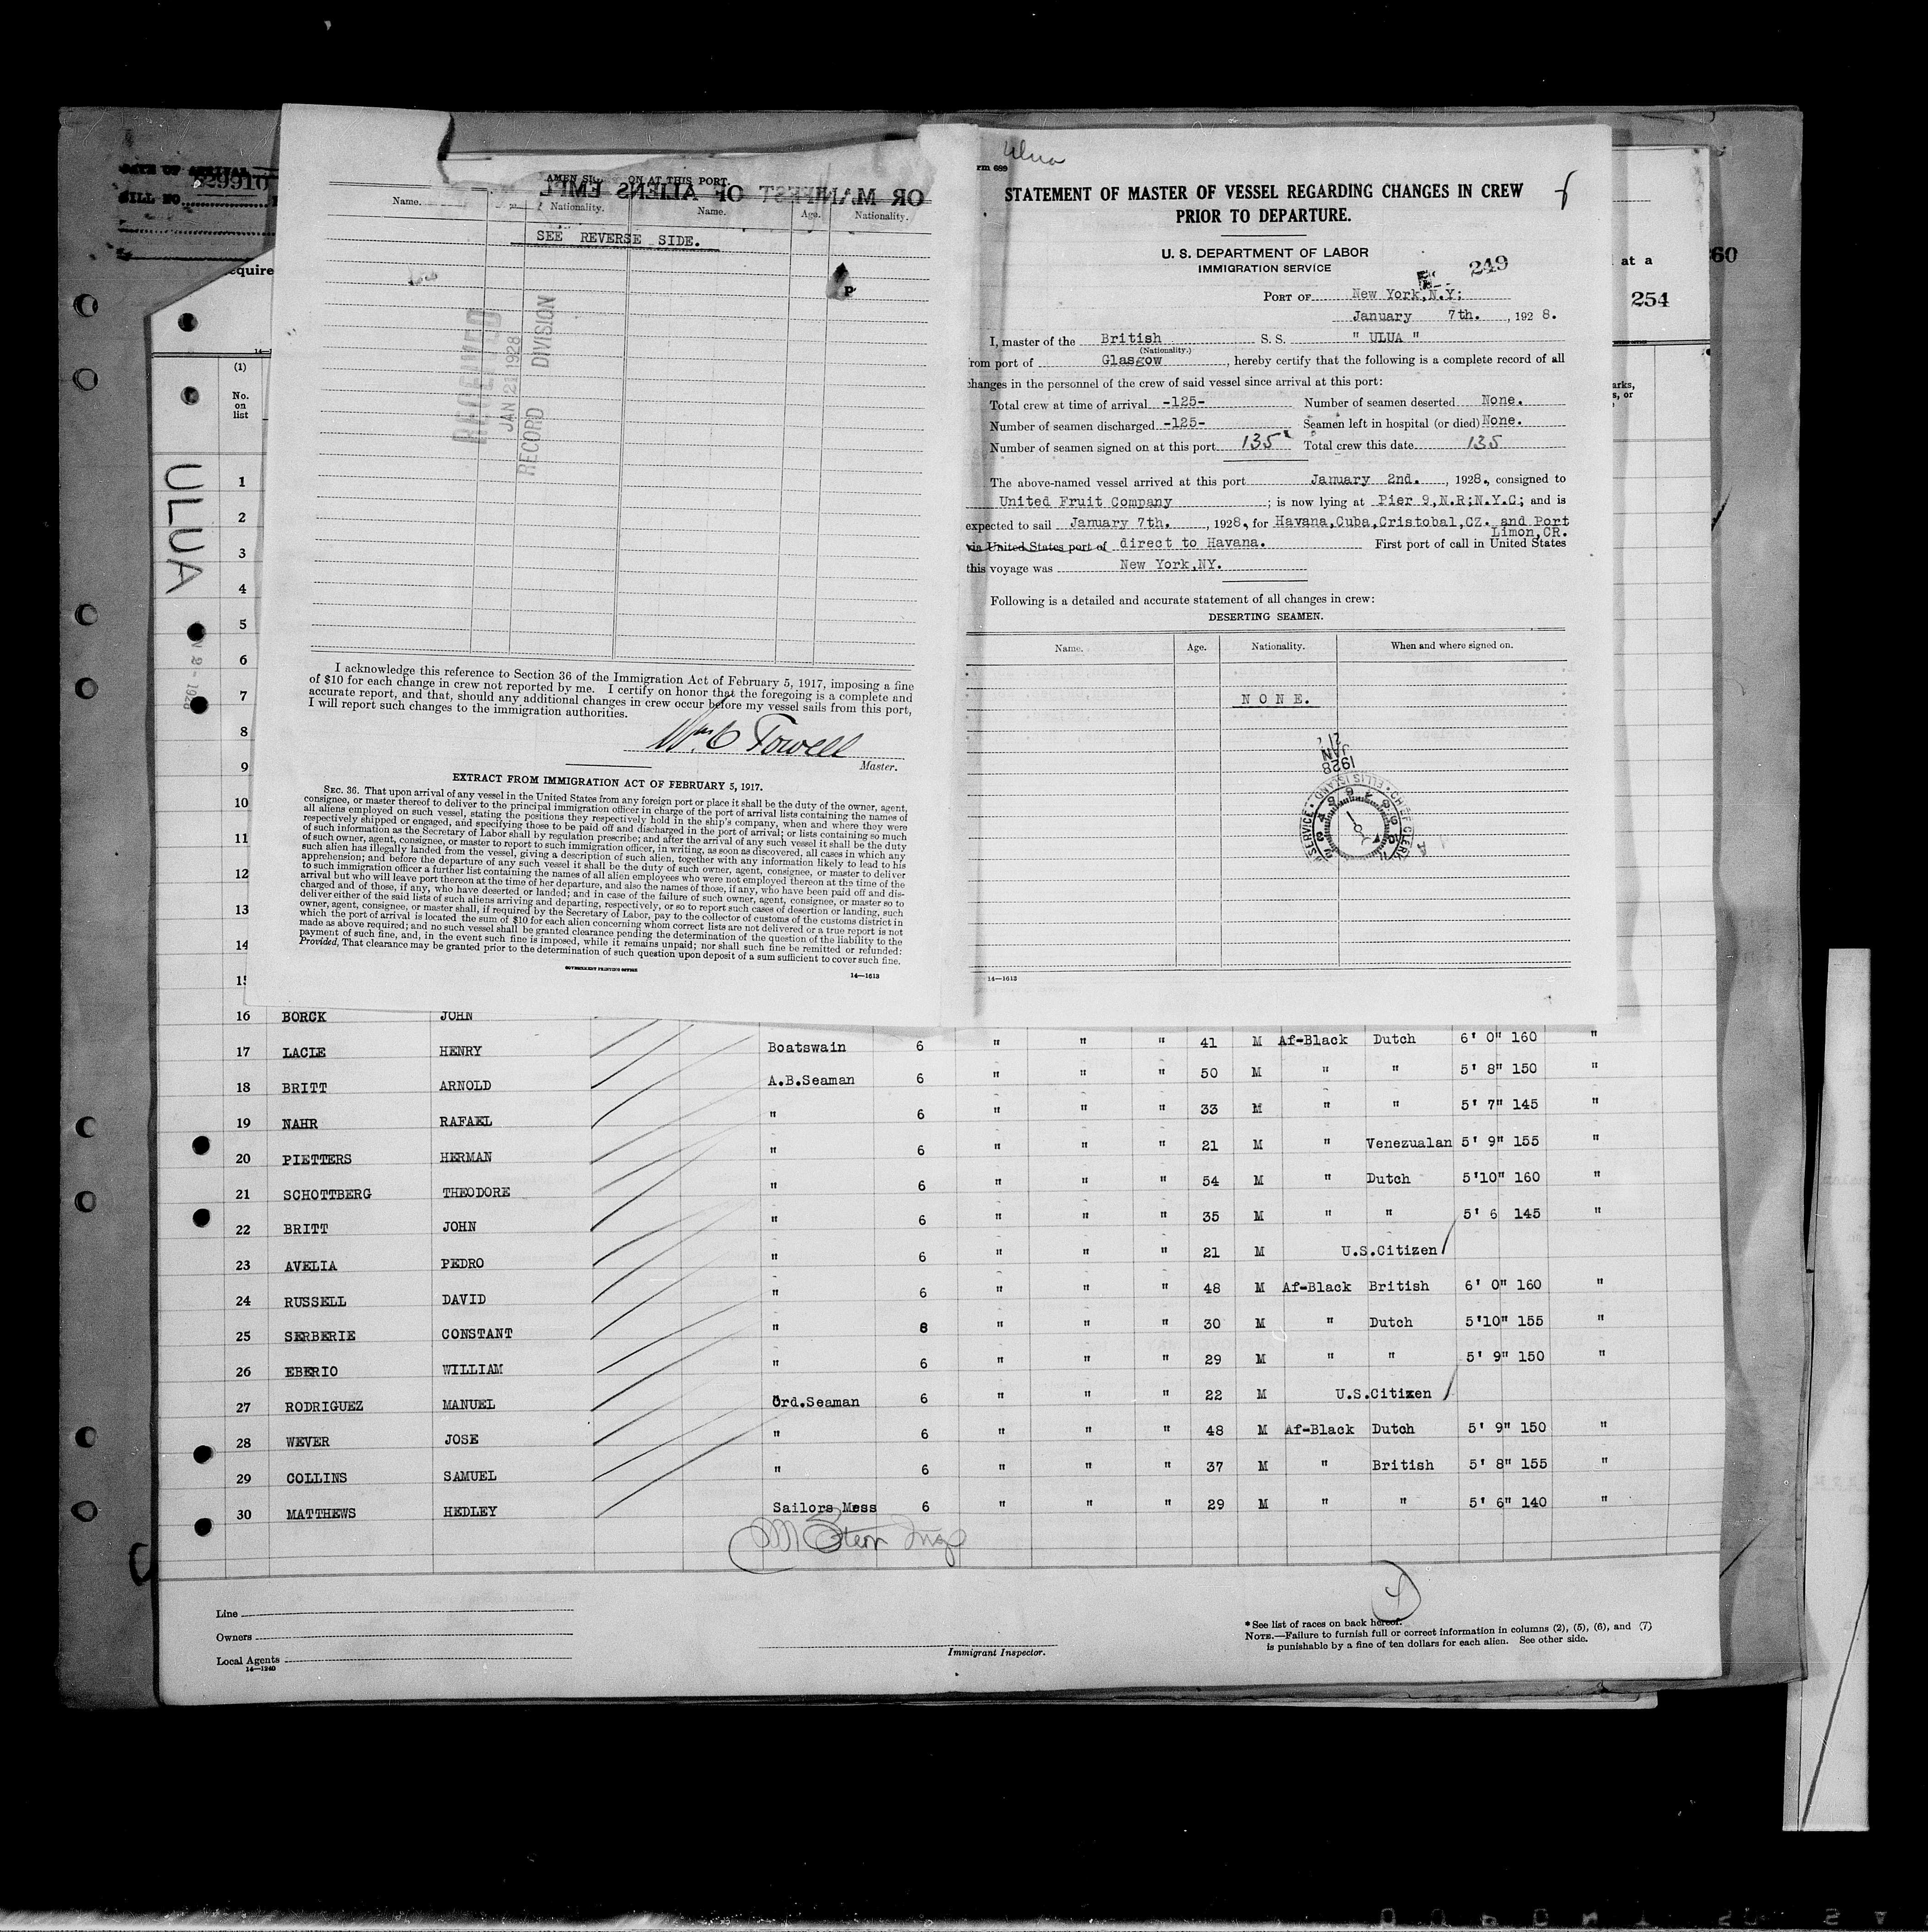 DATE OF ARRIVAL
829910
BILL NO.
equire
OR MANIFEST OF ALIENS EMPL
ON AT THIS PORT.
Name. Nationality. Name. Age. Nationality.
SEE REVERSE SIDE.
P
RECEIVED
JAN 21 1928
RECORD DIVISION
I acknowledge this reference to Section 36 of the Immigration Act of February 5, 1917, imposing a fine
of $10 for each change in crew not reported by me. I certify on honor that the foregoing is a complete and
accurate report, and that, should any additional changes in crew occur before my vessel sails from this port,
I will report such changes to the immigration authorities.
Wm C Towell
Master.
EXTRACT FROM IMMIGRATION ACT OF FEBRUARY 5, 1917.
SEC. 36. That upon arrival of any vessel in the United States from any foreign port or place it shall be the duty of the owner, agent,
consignee, or master thereof to deliver to the principal immigration officer in charge of the port of arrival lists containing the names of
all aliens employed on such vessel, stating the positions they respectively hold in the ship's company, when and where they were
respectively shipped or engaged, and specifying those to be paid off and discharged in the port of arrival; or lists containing so much
of such information as the Secretary of Labor shall by regulation prescribe; and after the arrival of any such vessel it shall be the duty
of such owner, agent, consignee, or master to report to such immigration officer, in writing, as soon as discovered, all cases in which any
such alien has illegally landed from the vessel, giving a description of such alien, together with any information likely to lead to his
apprehension; and before the departure of any such vessel it shall be the duty of such owner, agent, consignee, or master to deliver
to such immigration officer a further list containing the names of all alien employees who were not employed thereon at the time of the
arrival but who will leave port thereon at the time of her departure, and also the names of those, if any, who have been paid off and dis-
charged and of those, if any, who have deserted or landed; and in case of the failure of such owner, agent, consignee, or master so to
deliver either of the said lists of such aliens arriving and departing, respectively, or so to report such cases of desertion or landing, such
owner, agent, consignee, or master shall, if required by the Secretary of Labor, pay to the collector of customs of the customs district in
which the port of arrival is located the sum of $10 for each alien concerning whom correct lists are not delivered or a true report is not
made as above required; and no such vessel shall be granted clearance pending the determination of the question of the liability to the
payment of such fine, and, in the event such fine is imposed, while it remains unpaid; nor shall such fine be remitted or refunded:
Provided, That clearance may be granted prior to the determination of such question upon deposit of a sum sufficient to cover such fine.
GOVERNMENT PRINTING OFFICE 14—1613
Ulua
rm 689
STATEMENT OF MASTER OF VESSEL REGARDING CHANGES IN CREW
PRIOR TO DEPARTURE.
U. S. DEPARTMENT OF LABOR
IMMIGRATION SERVICE
249
PORT OF New York,N.Y;
January 7th. , 192 8.
I, master of the British S. S. " ULUA "
(Nationality.)
rom port of Glasgow , hereby certify that the following is a complete record of all
changes in the personnel of the crew of said vessel since arrival at this port:
Total crew at time of arrival -125- Number of seamen deserted None.
Number of seamen discharged -125- Seamen left in hospital (or died) None.
Number of seamen signed on at this port 135 Total crew this date 135
The above-named vessel arrived at this port January 2nd. , 1928., consigned to
United Fruit Company ; is now lying at Pier 9,N.R;N.Y.C; and is
expected to sail January 7th. , 1928, for Havana,Cuba,Cristobal,CZ. and Port
Limon,CR.
via United States port of direct to Havana. First port of call in United States
this voyage was New York,NY.
Following is a detailed and accurate statement of all changes in crew:
DESERTING SEAMEN.
Name. Age. Nationality. When and where signed on.
N O N E.
21
JAN
1928
SERVICE • ELLIS ISLAND • CHIEF CLERK
14—1613
at a
60
254
arks,
s, or
(1)
No.
on
list
ULUA
1
2
3
4
5
6
7
8
9
10
11
12
13
14
15
16 BORCK JOHN
17 LACLE HENRY Boatswain 6 " " " 41 M Af-Black Dutch 6' 0" 160 "
18 BRITT ARNOLD A.B.Seaman 6 " " " 50 M " " 5' 8" 150 "
19 NAHR RAFAEL " 6 " " " 33 M " " 5' 7" 145 "
20 PIETTERS HERMAN " 6 " " " 21 M " Venezualan 5' 9" 155 "
21 SCHOTTBERG THEODORE " 6 " " " 54 M " Dutch 5'10" 160 "
22 BRITT JOHN " 6 " " " 35 M " " 5' 6 145 "
23 AVELIA PEDRO " 6 " " " 21 M U.S.Citizen
24 RUSSELL DAVID " 6 " " " 48 M Af-Black British 6' 0" 160 "
25 SERBERIE CONSTANT " 6 " " " 30 M " Dutch 5'10" 155 "
26 EBERIO WILLIAM " 6 " " " 29 M " " 5' 9" 150 "
27 RODRIGUEZ MANUEL Ord.Seaman 6 " " " 22 M U.S.Citizen
28 WEVER JOSE " 6 " " " 48 M Af-Black Dutch 5' 9" 150 "
29 COLLINS SAMUEL " 6 " " " 37 M " British 5' 8" 155 "
30 MATTHEWS HEDLEY Sailors Mess 6 " " " 29 M " " 5' 6" 140 "
Line
Owners
Local Agents
14—1240
Immigrant Inspector.
* See list of races on back hereof.
NOTE.—Failure to furnish full or correct information in columns (2), (5), (6), and (7)
is punishable by a fine of ten dollars for each alien. See other side.